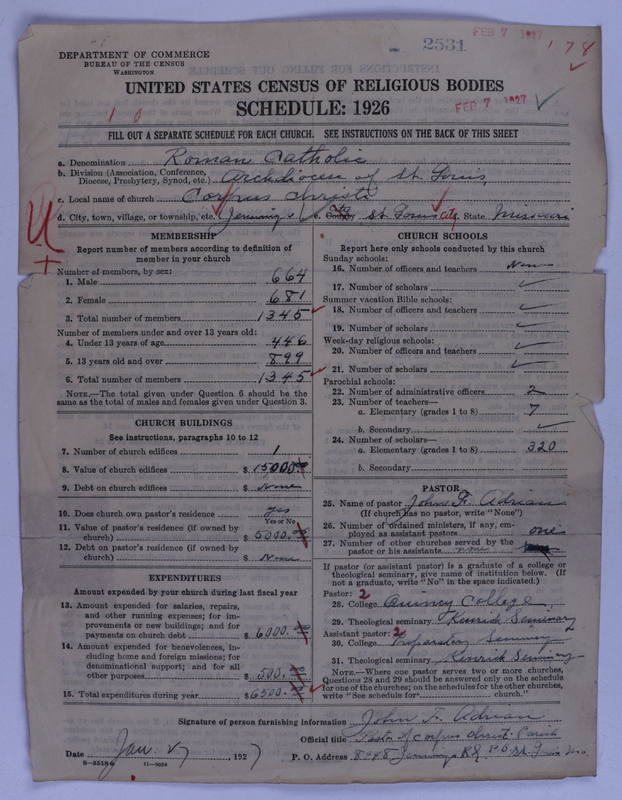 2531
FEB 7 1927
178
DEPARTMENT OF COMMERCE
BUREAU OF THE CENSUS
WASHINGTON
UNITED STATES CENSUS OF RELIGIOUS BODIES
SCHEDULE: 1926
FEB 7 1927
1 0
FILL OUT A SEPARATE SCHEDULE FOR EACH CHURCH. SEE INSTRUCTIONS ON THE BACK OF THIS SHEET
a. Denomination Roman Catholic
b. Division (Association, Conference, Diocese, Presbytery, Synod, etc.) Archdiocese of St Louis,
c. Local name of church Corpus Christi
d. City, town, village, or township, etc. Jennings e. County St Louis City State Missouri
U
+
MEMBERSHIP
Report number of members according to definition of
member in your church
Number of members, by sex:
1. Male 664
2. Female 681
3. Total number of members 1345
Number of members under and over 13 years old:
4. Under 13 years of age 446
5. 13 years old and over 899
6. Total number of members 1345
NOTE.—The total given under Question 6 should be
same as the total of males and females given under Question 3.
CHURCH BUILDINGS
See instructions, paragraphs 10 to 12
7. Number of church edifices 1
8. Value of church edifices $ 15000
9. Debt on church edifices $ None
10. Does church own pastor's residence? yes
Yes or No
11. Value of pastor's residence (if owned by
church) $ 5000.
12. Debt on pastor's residence (if owned by
church) $ None
EXPENDITURES
Amount expended by your church during last fiscal year
13. Amount expended for salaries, repairs,
and other running expenses; for im-
provements or new buildings; and for
payments on church debt $ 6000.
14. Amount expended for benevolences, in-
cluding home and foreign missions; for
denominational support; and for all
other purposes $ 500.
15. Total expenditures during year $ 6500.
CHURCH SCHOOLS
Report here only schools conducted by this church
Sunday schools:
16. Number of officers and teachers None
17. Number of scholars
Summer vacation Bible schools:
18. Number of officers and teachers
19. Number of scholars
Week-day religious schools:
20. Number of officers and teachers
21. Number of scholars
Parochial schools:
22. Number of administrative officers 2
23. Number of teachers—
a. Elementary (grades 1 to 8) 7
b. Secondary
24. Number of scholars—
a. Elementary (grades 1 to 8) 320
b. Secondary
PASTOR
25. Name of pastor John F. Adrian
(If church has no pastor, write "None")
26. Number of ordained ministers, if any, em-
ployed as assistant pastors one
27. Number of other churches served by the
pastor or his assistants none
If pastor (or assistant pastor) is a graduate of a college or
theological seminary, give name of institution below. (If
not a graduate, write "No" in the space indicated.)
Pastor: 2
28. College Quincy College
29. Theological seminary Kenrick Seminary
Assistant pastor: 2
30. College Preparatory Seminary
31. Theological seminary Kenrick Seminary
NOTE.—Where one pastor serves two or more churches,
Questions 28 and 29 should be answered only on the schedule
for one of the churches; on the schedules for the other churches,
write "See schedule for ______ church."
Signature of person furnishing information John F. Adrian
Official title Pastor of Corpus Christi Parish
Date Jan 27, 1927 P. O. Address Jennings Rd P.O. St. Louis Mo.
8-5518a 11-9024